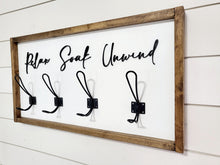 Relax Soak Unwind